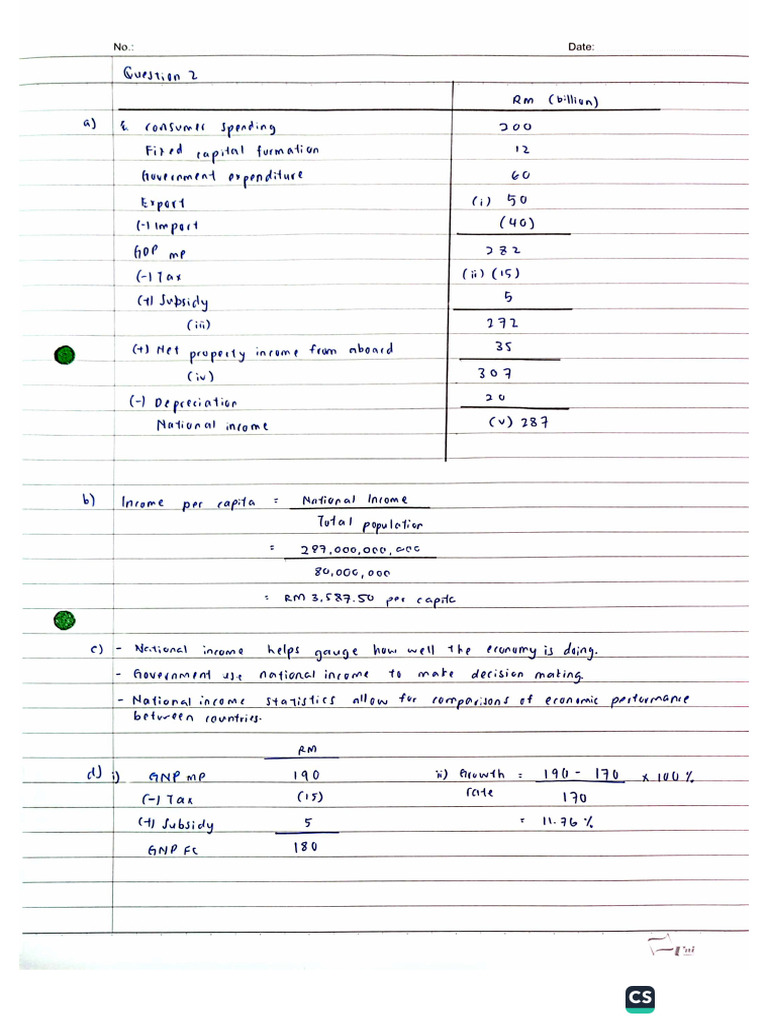 No.: Date:
Question 2
RM (billion)
a) & consumer spending 200
Fixed capital formation 12
Government expenditure 60
Export (i) 50
(-) Import (40)
GDP MP 282
(-) Tax (ii) (15)
(+) Subsidy 5
(iii) 272
(+) Net property income from aboard 35
(iv) 307
(-) Depreciation 20
National income (v) 287
b) Income per capita = National Income
Total population
= 287,000,000,000
80,000,000
= RM 3,587.50 per capita
c) - National income helps gauge how well the economy is doing.
- Government use national income to make decision making.
- National income statistics allow for comparisons of economic performance
between countries.
RM
d) i) GNP MP 190 ii) Growth = 190 - 170 x 100%
(-) Tax (15) rate 170
(+) Subsidy 5 = 11.76%
GNP FC 180
CS